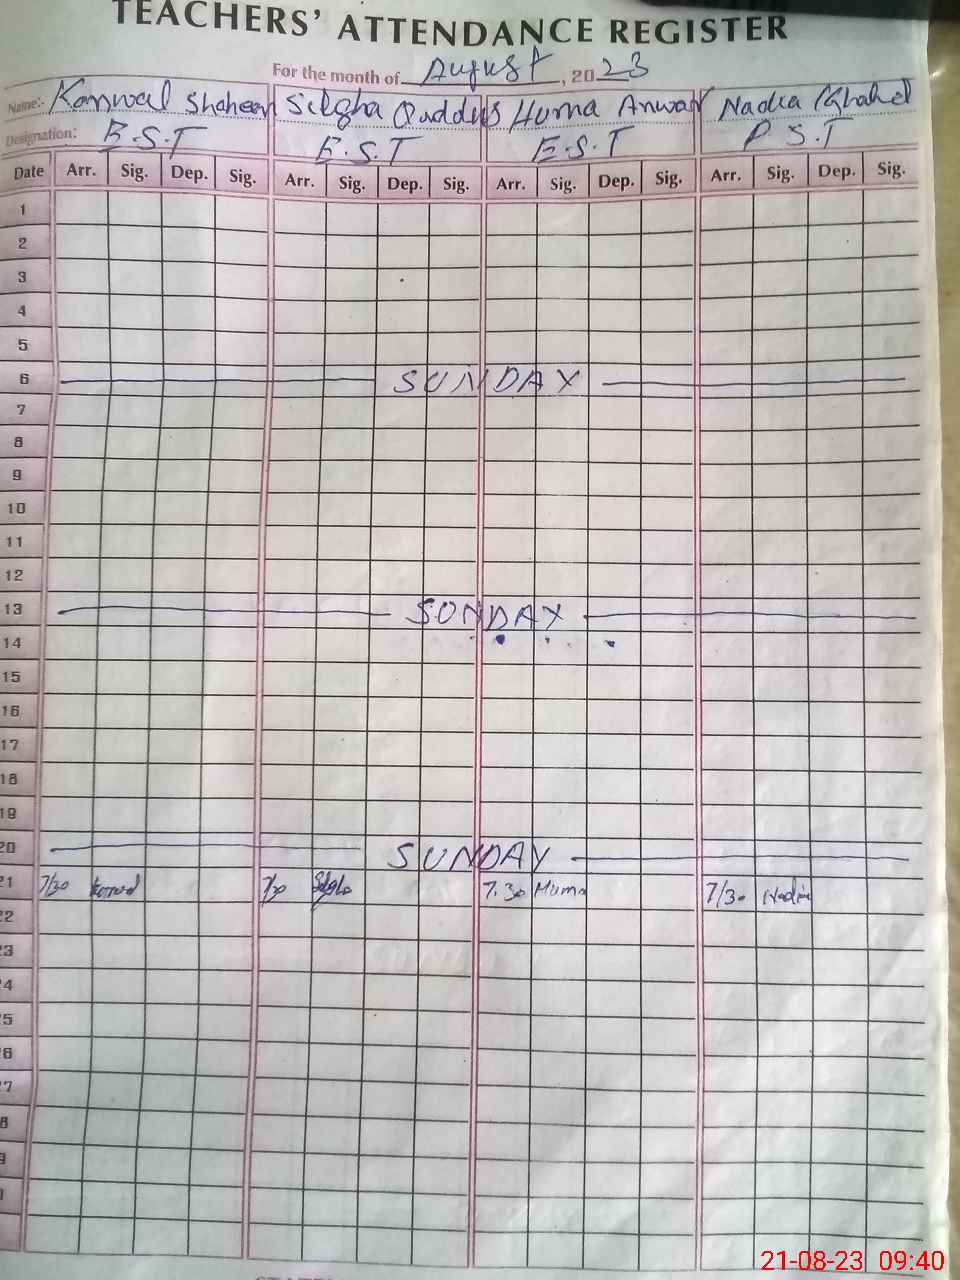 TEACHERS' ATTENDANCE REGISTER
For the month of August, 2023
Name:- Kanwal Shaheen Sidgha Quddus Huma Anwar Nadia Khahel
Designation: E.S.T E.S.T E.S.T P.S.T
Date Arr. Sig. Dep. Sig. Arr. Sig. Dep. Sig. Arr. Sig. Dep. Sig. Arr. Sig. Dep. Sig.
1
2
3
4
5
6 SUNDAY
7
8
9
10
11
12
13 SUNDAY
14
15
16
17
18
19
20 SUNDAY
21 7/30 Kanwal 7/30 7.30 Huma 7/30 Nadia
22
23
24
25
26
27
8
9
21-08-23 09:40